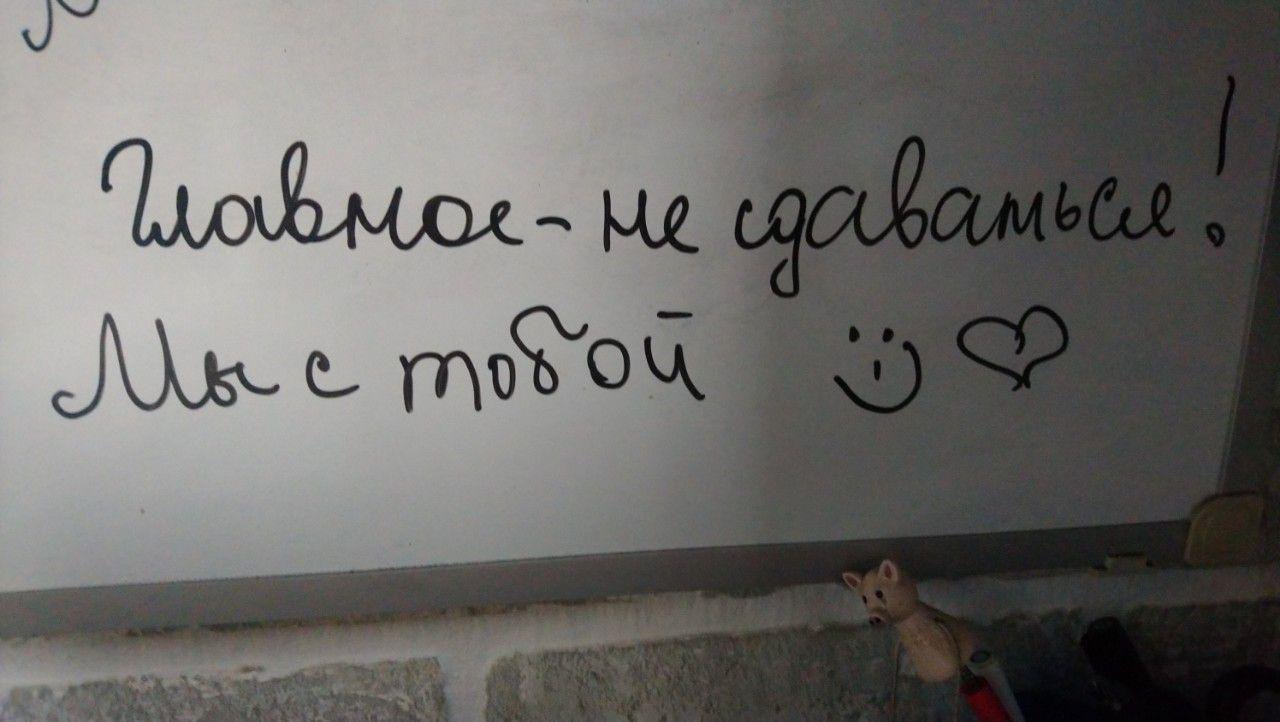 Главное - не сдаваться!
Мы с тобой